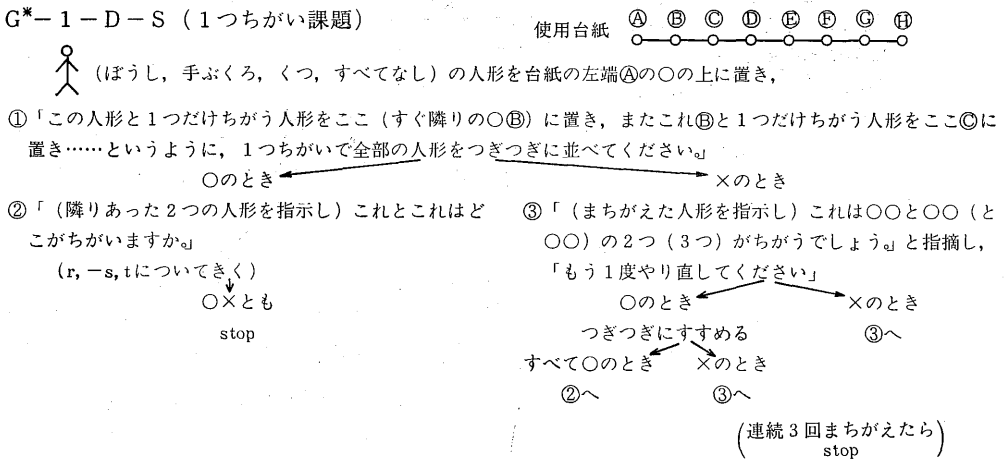 G*-1-D-S（1つちがい課題）
使用台紙 Ⓐ Ⓑ Ⓒ Ⓓ Ⓔ Ⓕ Ⓖ Ⓗ
（ぼうし，手ぶくろ，くつ，すべてなし）の人形を台紙の左端Ⓐの○の上に置き，
①「この人形と1つだけちがう人形をここ（すぐ隣りの○Ⓑ）に置き，またこれⒷと1つだけちがう人形をここⒸに
置き……というように，1つちがいで全部の人形をつぎつぎに並べてください。」
○のとき ×のとき
②「（隣りあった2つの人形を指示し）これとこれはど
こがちがいますか。」
（r, －s, tについてきく）
○×とも
stop
③「（まちがえた人形を指示し）これは○○と○○（と
○○）の2つ（3つ）がちがうでしょう。」と指摘し，
「もう1度やり直してください」
○のとき ×のとき
つぎつぎにすすめる ③へ
すべて○のとき ×のとき
②へ ③へ
（連続3回まちがえたら
stop）